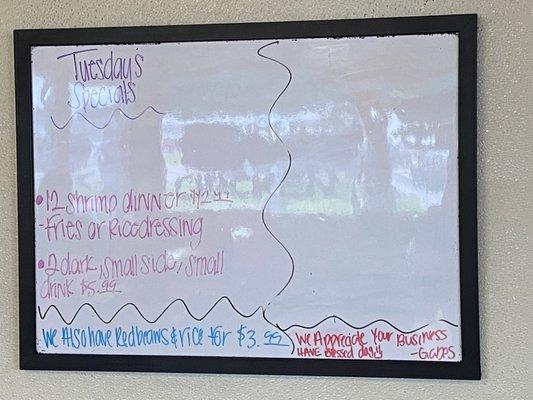 Tuesday's
Specials
• 12 shrimp dinner $12.99
- Fries or Ricedressing
• 2 dark, small side, small
drink $5.99
We Also have Redbeans & rice for $3.99
We Appreciate Your Business
HAVE Blessed day
- Gabos